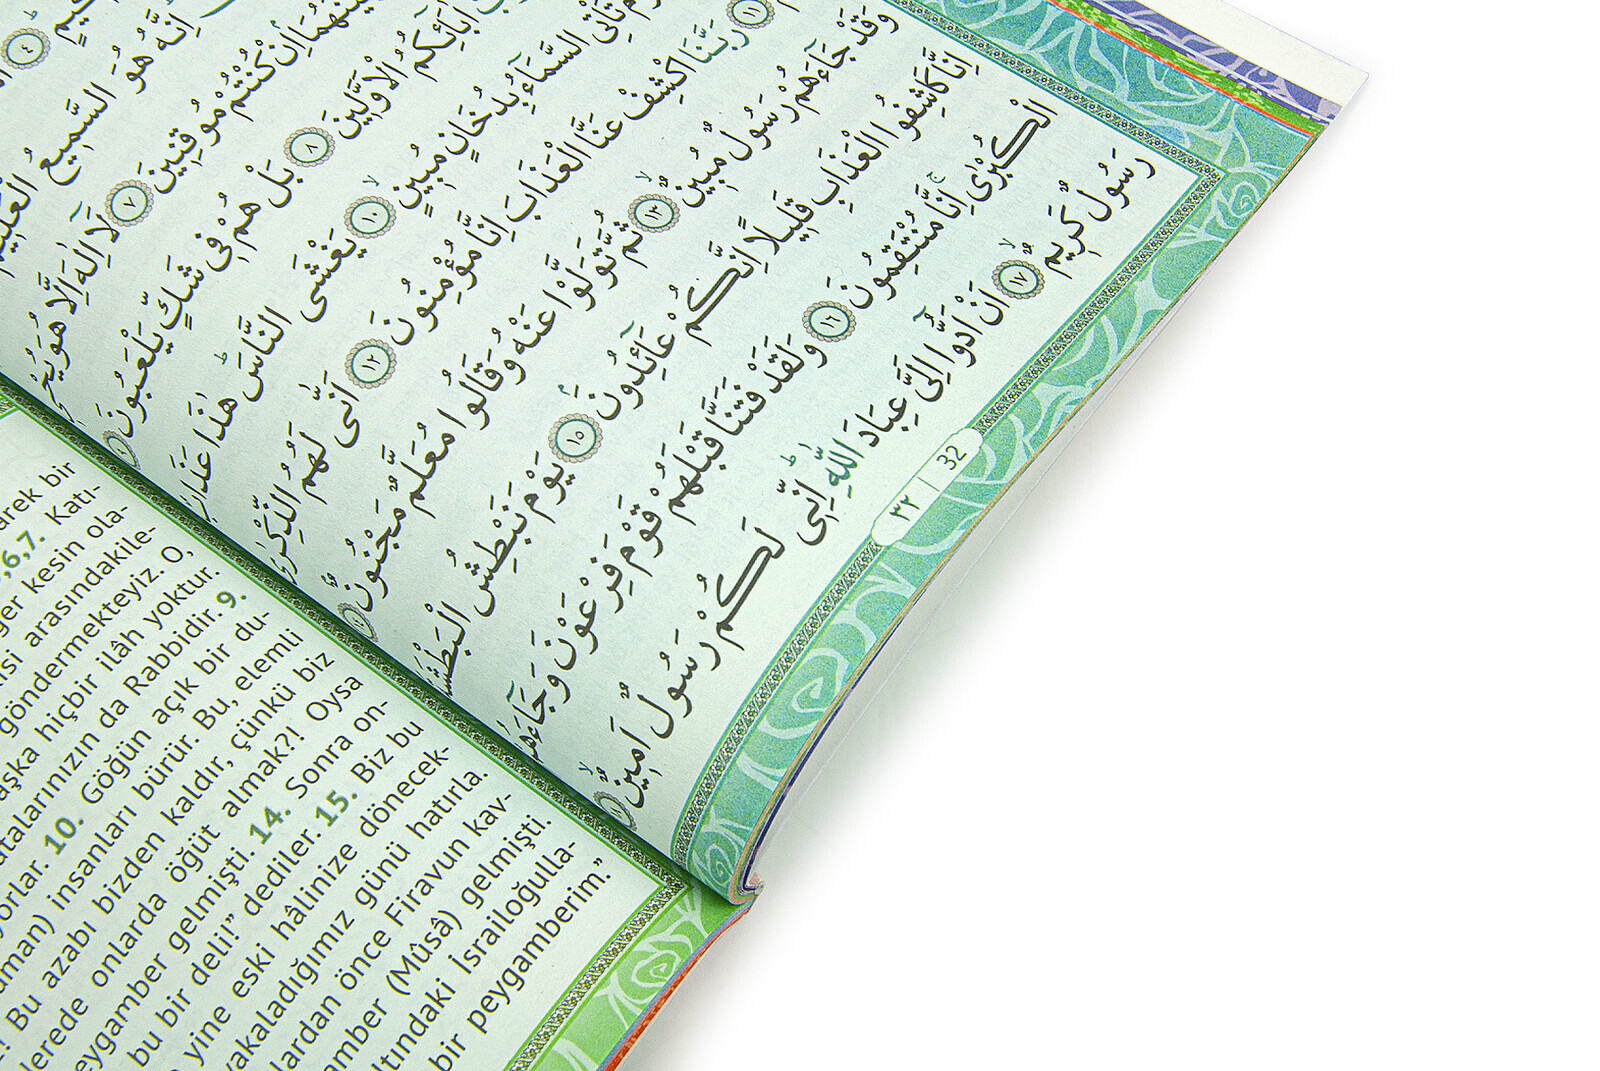 حَكِيمٍ ٤
اِنَّهُ هُوَ السَّمِيعُ الْعَلِيمُ
اِنْ كُنْتُمْ مُوقِنِينَ ٧ لَٓا اِلٰهَ اِلَّا هُوَ
اٰبَٓائِكُمُ الْاَوَّلِينَ ٨ بَلْ هُمْ فِى شَكٍّ يَلْعَبُونَ ٩
تَأْتِى السَّمَٓاءُ بِدُخَانٍ مُبِينٍ ١٠ يَغْشَى النَّاسَ هٰذَا
١١ رَبَّنَا اكْشِفْ عَنَّا الْعَذَابَ اِنَّا مُؤْمِنُونَ ١٢ اَنّٰى لَهُمُ الذِّكْرٰى
وَقَدْ جَٓاءَهُمْ رَسُولٌ مُبِينٌ ١٣ ثُمَّ تَوَلَّوْا عَنْهُ وَقَالُوا مُعَلَّمٌ مَجْنُونٌ
اِنَّا كَاشِفُوا الْعَذَابِ قَلِيلًا اِنَّكُمْ عَٓائِدُونَ ١٥ يَوْمَ نَبْطِشُ الْبَطْشَةَ
الْكُبْرٰى اِنَّا مُنْتَقِمُونَ ١٦ وَلَقَدْ فَتَنَّا قَبْلَهُمْ قَوْمَ فِرْعَوْنَ وَجَٓاءَهُمْ
رَسُولٌ كَرِيمٌ ١٧ اَنْ اَدُّٓوا اِلَىَّ عِبَادَ اللّٰهِ اِنِّى لَكُمْ رَسُولٌ اَمِينٌ
٣٢ | 32
arek bir
,6,7. Katı-
ğer kesin ola-
isi arasındakile-
göndermekteyiz. O,
aşka hiçbir ilâh yoktur.
atalarınızın da Rabbidir. 9.
yorlar. 10. Göğün açık bir du-
uman) insanları bürür. Bu, elemli
! Bu azabı bizden kaldır, çünkü biz
lerede onlarda öğüt almak?! Oysa
eygamber gelmişti. 14. Sonra on-
bu bir deli!” dediler. 15. Biz bu
yine eski hâlinize dönecek-
yakaladığımız günü hatırla.
lardan önce Firavun kav-
amber (Mûsâ) gelmişti.
ltındaki İsrailoğulla-
bir peygamberim.”